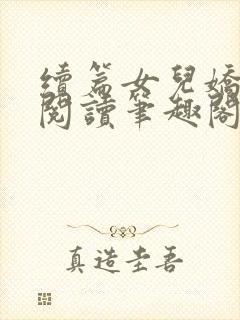 續篇女兒嬌
閱讀筆趣閣
真造圭吾